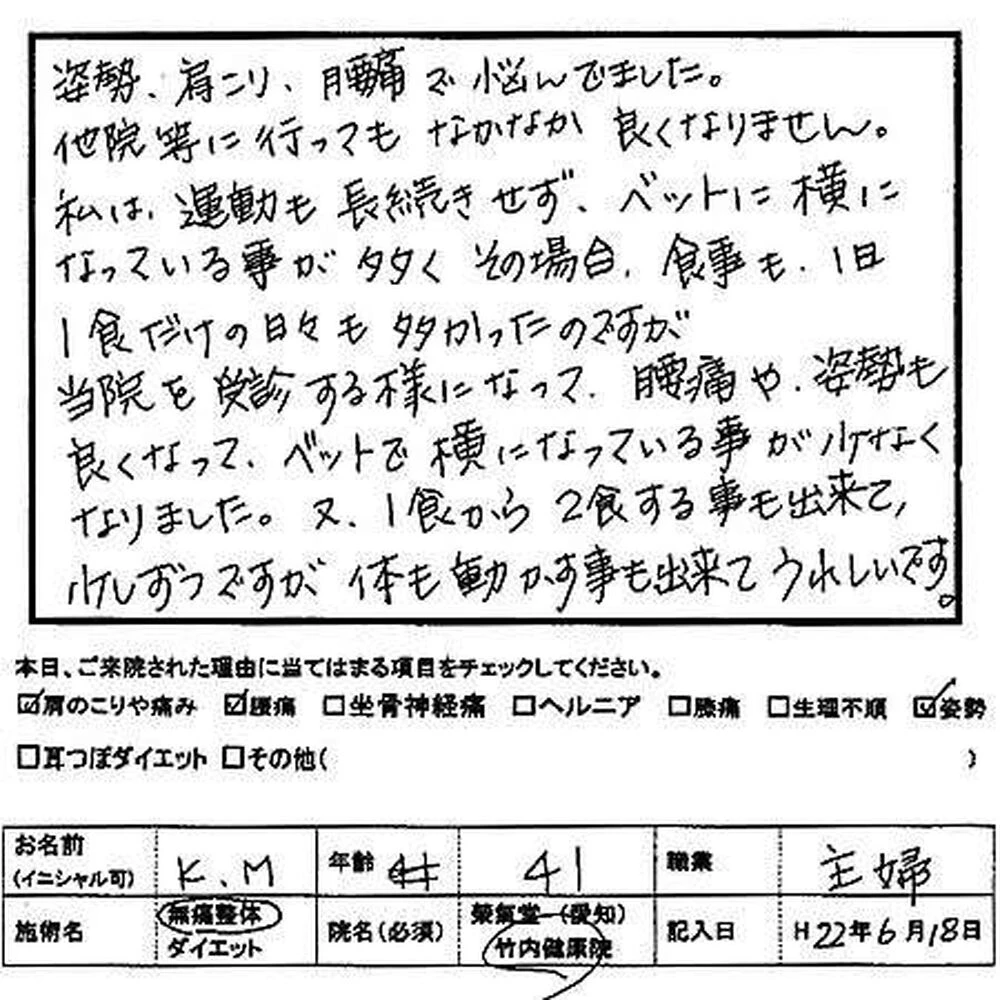 姿勢、肩こり、腰痛で悩んでました。
他院等に行ってもなかなか良くなりません。
私は、運動も長続きせず、ベットに横に
なっている事が多くその場合、食事も、1日
1食だけの日々も多かったのですが
当院を受診する様になって、腰痛や、姿勢も
良くなって、ベットで横になっている事が少なく
なりました。又、1食から2食する事も出来て、
少しずつですが体も動かす事も出来てうれしいです。
本日、ご来院された理由に当てはまる項目をチェックしてください。
☑肩のこりや痛み ☑腰痛 □坐骨神経痛 □ヘルニア □膝痛 □生理不順 ☑姿勢
□耳つぼダイエット □その他( )
お名前 (イニシャル可) K.M 年齢 41 職業 主婦
施術名 無痛整体 ダイエット 院名(必須) 榮氣堂(愛知) 竹内健康院 記入日 H22年6月18日